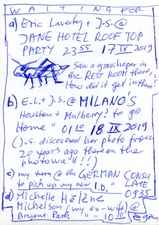 WAITING FOR
a) Eric Lively + J.S. @
JANE HOTEL ROOF TOP
PARTY 23 55 17 IX 2019
Saw a grasshopper in
the REST ROOM there,
How did it get in there?
b) E.L. + J.S. @ MILANO'S
Houston + Mulberry? to go
Home " 01 10 18 IX 2019
(J.S. discovered her photo from
20 years ago there on the
photowall!!)
c) my turn @ the GERMAN CONSU
LATE
to pick up my new I.D. " 0935
d) Michelle Hélène
Michelson (my ex-wife) @
Bryant Park " 10 10